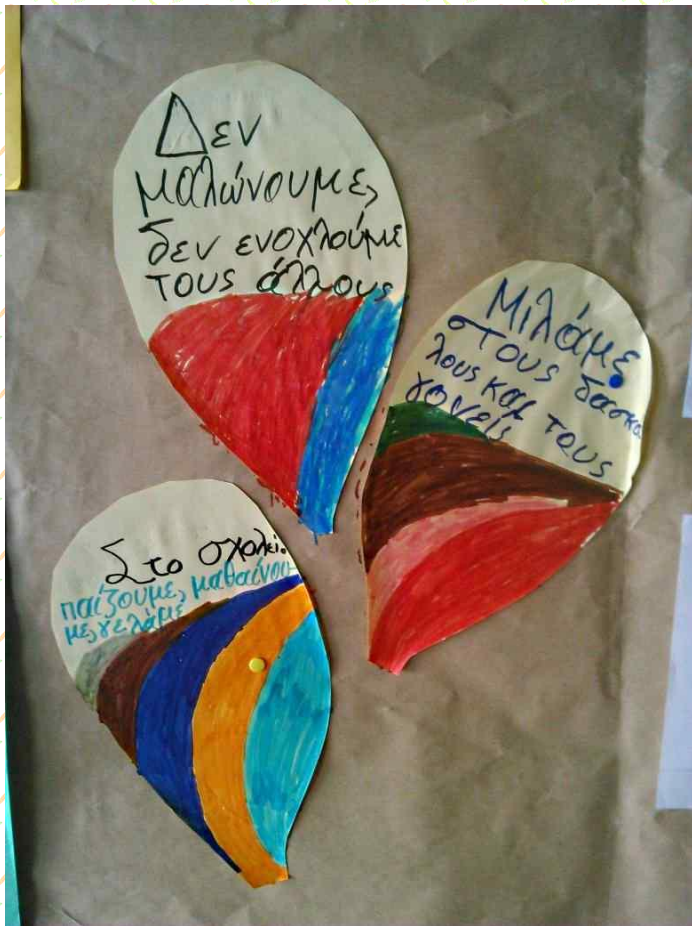 Δεν
μαλώνουμε,
δεν ενοχλούμε
τους άλλους
Μιλάμε
στους δασκα
λους και τους
γονείς
Στο σχολεί
παίζουμε, μαθαίνου-
με, γελάμε